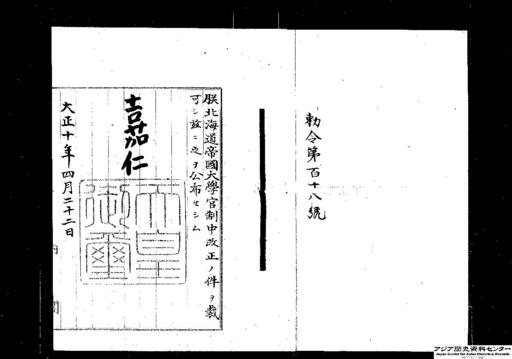 勅令第百十八號
朕北海道帝國大學官制中改正ノ件ヲ裁
可シ茲ニ之ヲ公布セシム
嘉仁
天皇御璽
大正十年四月二十二日
内閣
アジア歴史資料センター
Japan Center for Asian Historical Records